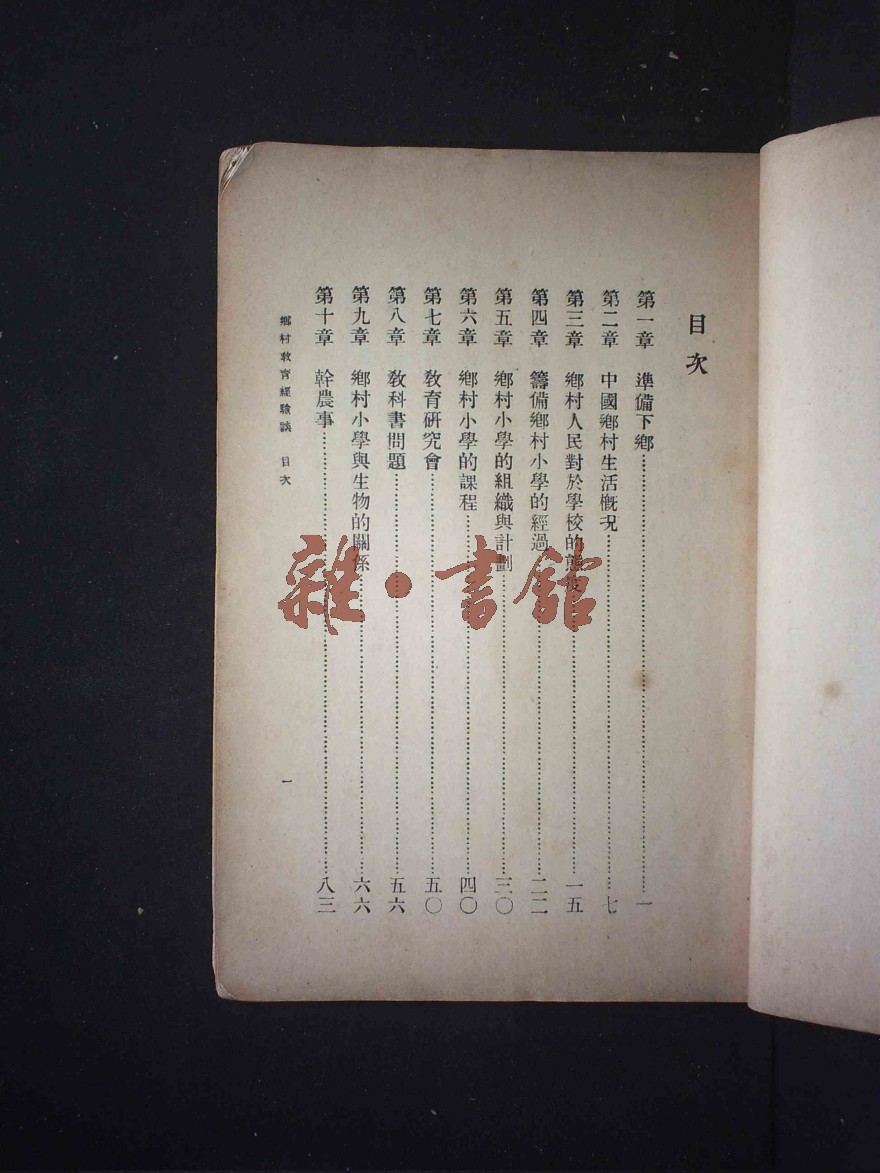 目次
第一章 準備下鄉…………一
第二章 中國鄉村生活概况…………七
第三章 鄉村人民對於學校的態度…………一五
第四章 籌備鄉村小學的經過…………二二
第五章 鄉村小學的組織與計劃…………三〇
第六章 鄉村小學的課程…………四〇
第七章 教育研究會…………五〇
第八章 教科書問題…………五六
第九章 鄉村小學與生物的關係…………六六
第十章 幹農事…………八三
鄉村教育經驗談 目次
一
雜·書館